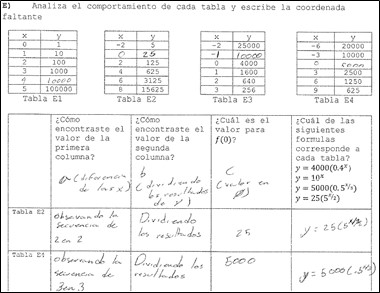 E) Analiza el comportamiento de cada tabla y escribe la coordenada
faltante
x y
0 1
1 10
2 100
3 1000
4 10000
5 100000
Tabla E1
x y
-2 5
0 25
2 125
4 625
6 3125
8 15625
Tabla E2
x y
-2 25000
-1 10000
0 4000
1 1600
2 640
3 256
Tabla E3
x y
-6 20000
-3 10000
0 5000
3 2500
6 1250
9 625
Tabla E4
¿Cómo
encontraste el
valor de la
primera
columna?
a (diferencia
de las x)
¿Cómo
encontraste el
valor de la
segunda
columna?
b
(dividiendo
los resultados
de y)
¿Cuál es el
valor para
f(0)?
C
(valor en
¿Cuál de las
siguientes
formulas
corresponde a
cada tabla?
y = 4000(0.4ˣ)
y = 10ˣ
y = 5000(0.5ˣ/³)
y = 25(5ˣ/²)
Tabla E2
observando la
secuencia de
2 en 2
Dividiendo
los resultados
25
y = 25(5ˣ/²)
Tabla E4
observando la
secuencia de
3 en 3
Dividiendo los
resultados
5000
y = 5000(.5ˣ/³)